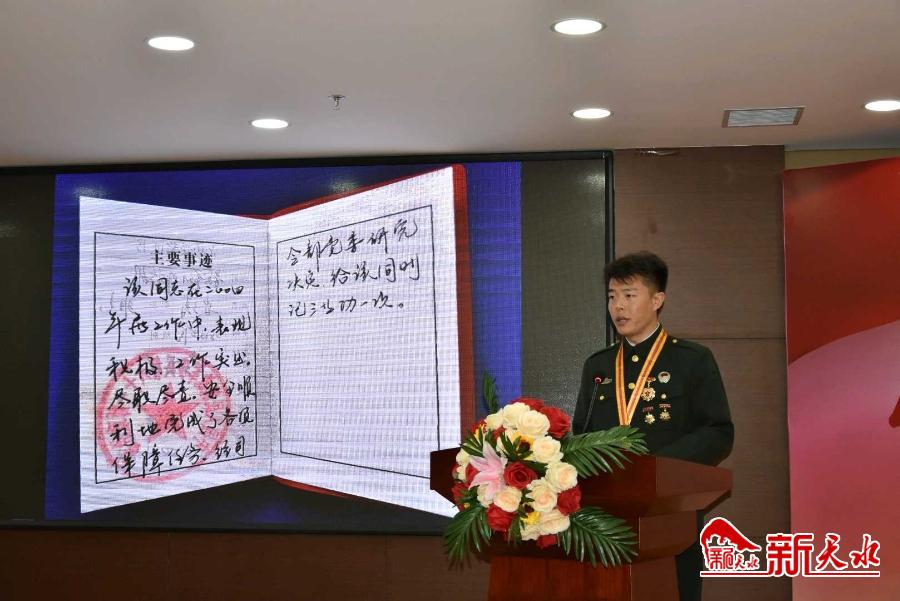 主要事迹
该同志在二〇〇四
年度工作中,表现
积极、工作突出,
尽职尽责,安全顺
利地完成了各项
保障任务。经司
令部党委研究
决定 给该同志
记三等功一次。
新天水
新天水